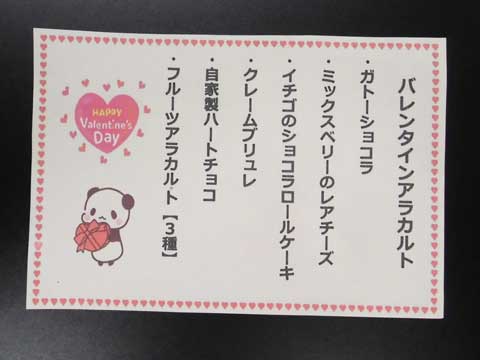 バレンタインアラカルト
・ガトーショコラ
・ミックスベリーのレアチーズ
・イチゴのショコラロールケーキ
・クレームブリュレ
・自家製ハートチョコ
・フルーツアラカルト【3種】
HAPPY
Valentine's
Day